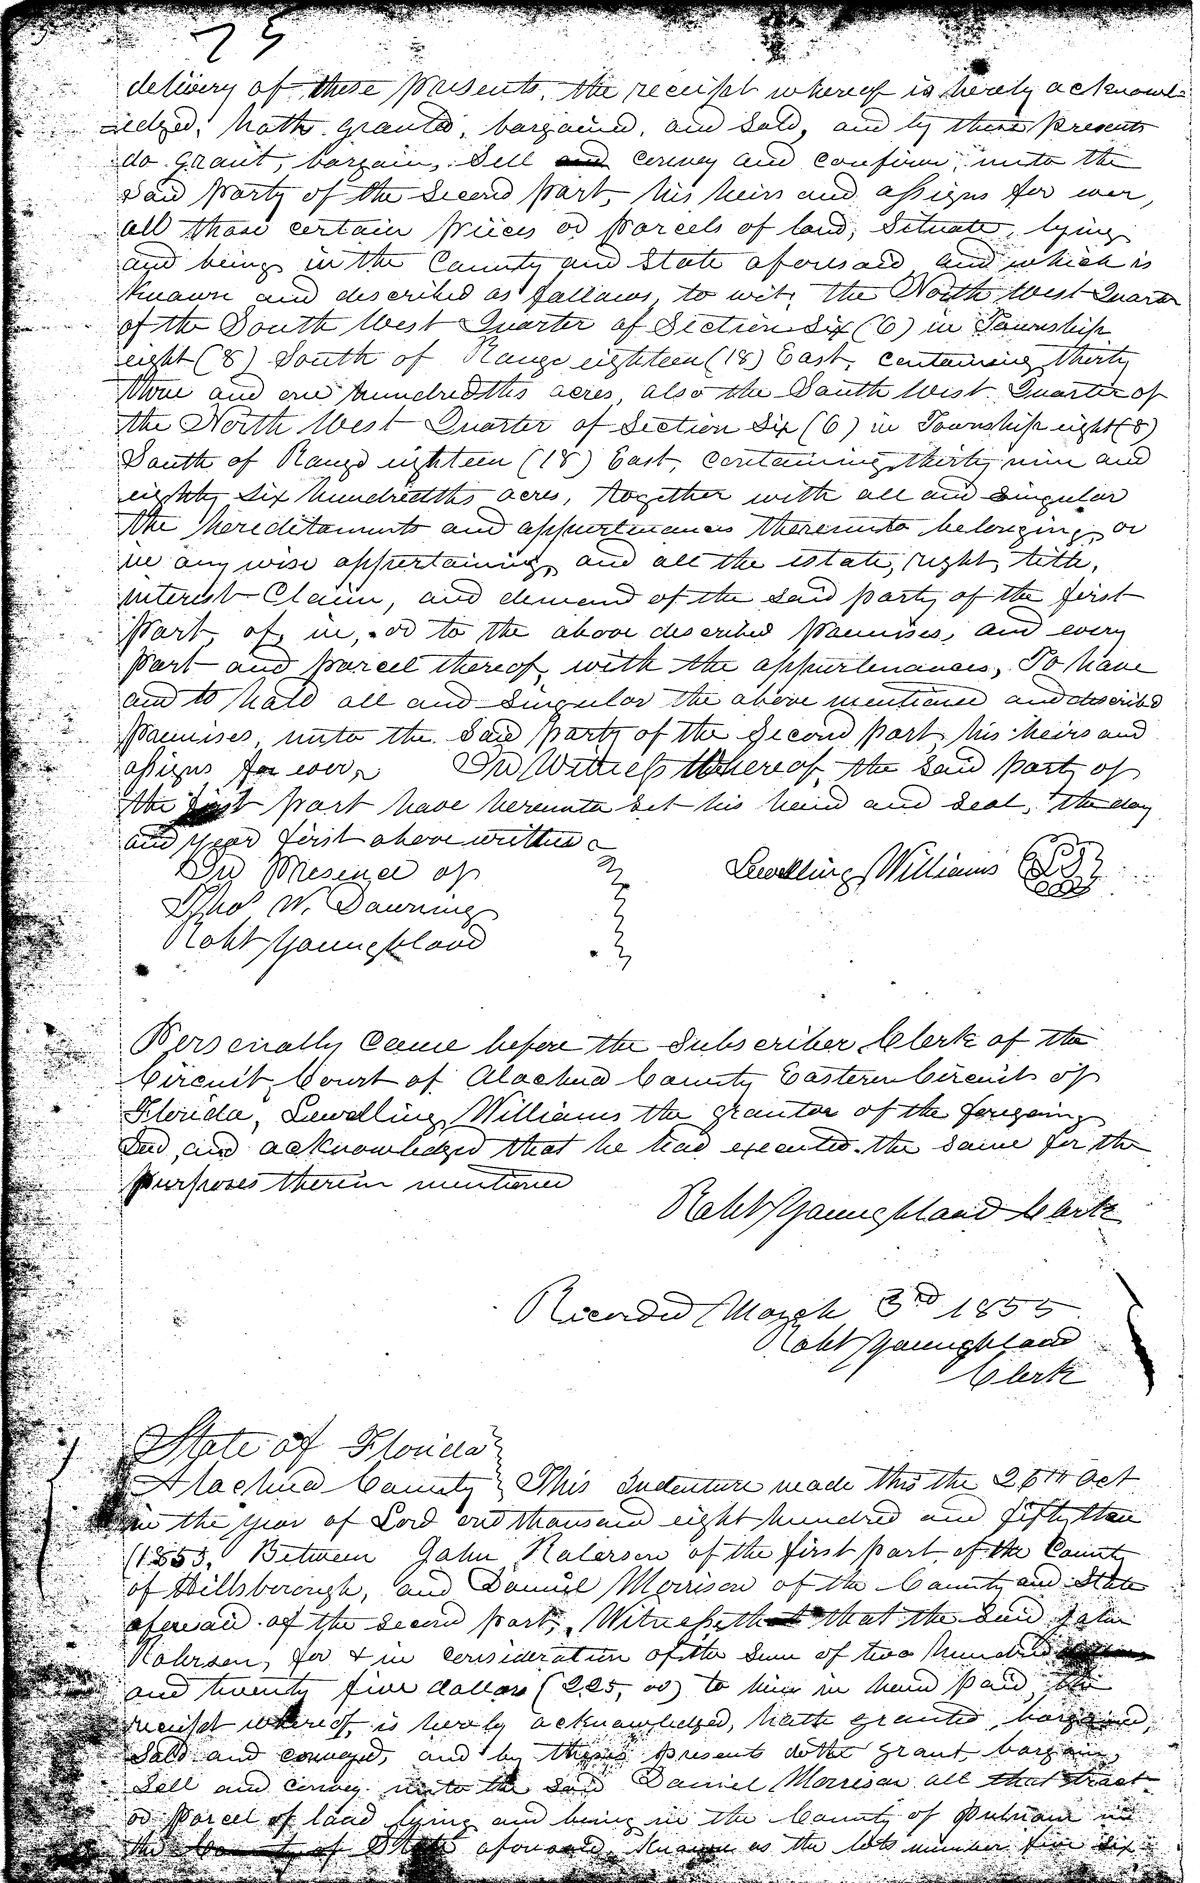 75
delivery of these presents, the receipt whereof is hereby acknowl=
=edged, hath granted, bargained, and Sold, and by these Presents
do grant, bargain, Sell and convey and confirm, unto the
Said Party of the Second Part, his heirs and assigns for ever,
all those certain pieces or parcels of land, Situate, lying
and being in the County and State aforesaid and which is
Known and described as follows, to wit, the North West Quarter
of the South West Quarter of Section Six (6) in Township
eight (8) South of Range eighteen (18) East, containing thirty
and one hundredths acres, also the South West Quarter of
the North West Quarter of Section Six (6) in Township eight (8)
South of Range eighteen (18) East, containing thirty nine and
eighty Six hundredths acres, together with all and Singular
the hereditaments and appurtenances thereunto belonging, or
in any wise appertaining, and all the estate, right, title,
interest Claim, and demand of the Said party of the first
Part, of, in, or to the above described premises, and every
part and parcel thereof, with the appurtenances, To have
and to hold all and Singular the above mentioned and described
Premises, unto the Said Party of the Second part, his heirs and
assigns for ever, In Witness Whereof, the Said Party of
the first part have hereunto Set his hand and Seal, the day
and year first above written
In Presence of
Lewelling Williams LS
Thos W. Downing
Robt Youngblood
Personally Came before the Subscriber, Clerk of the
Circuit Court of Alachua County Eastern Circuit of
Florida, Lewelling Williams the grantor of the foregoing
Deed, and acknowledged that he had executed the Same for the
purposes therein mentioned
Robt Youngblood Clerk
Recorded March 3rd 1855
Robt Youngblood
Clerk
State of Florida
Alachua County This Indenture made this the 26th Oct
in the year of Lord one thousand eight hundred and fifty three
(1853, Between John Roberson of the first part, of the County
of Hillsborough, and Daniel Morrison of the County and State
aforesaid of the Second part, Witnesseth that the Said John
Roberson, for & in consideration of the Sum of two hundred
and twenty five dollars (225,00) to him in hand paid, the
receipt whereof, is hereby acknowledged, hath granted, bargained,
Sold and conveyed, and by these presents doth grant, bargain,
Sell and convey unto the Said Daniel Morrison all that tract
or parcel of land lying and being in the County of Putnam in
the County of State aforesaid, Known as the lots number five Six